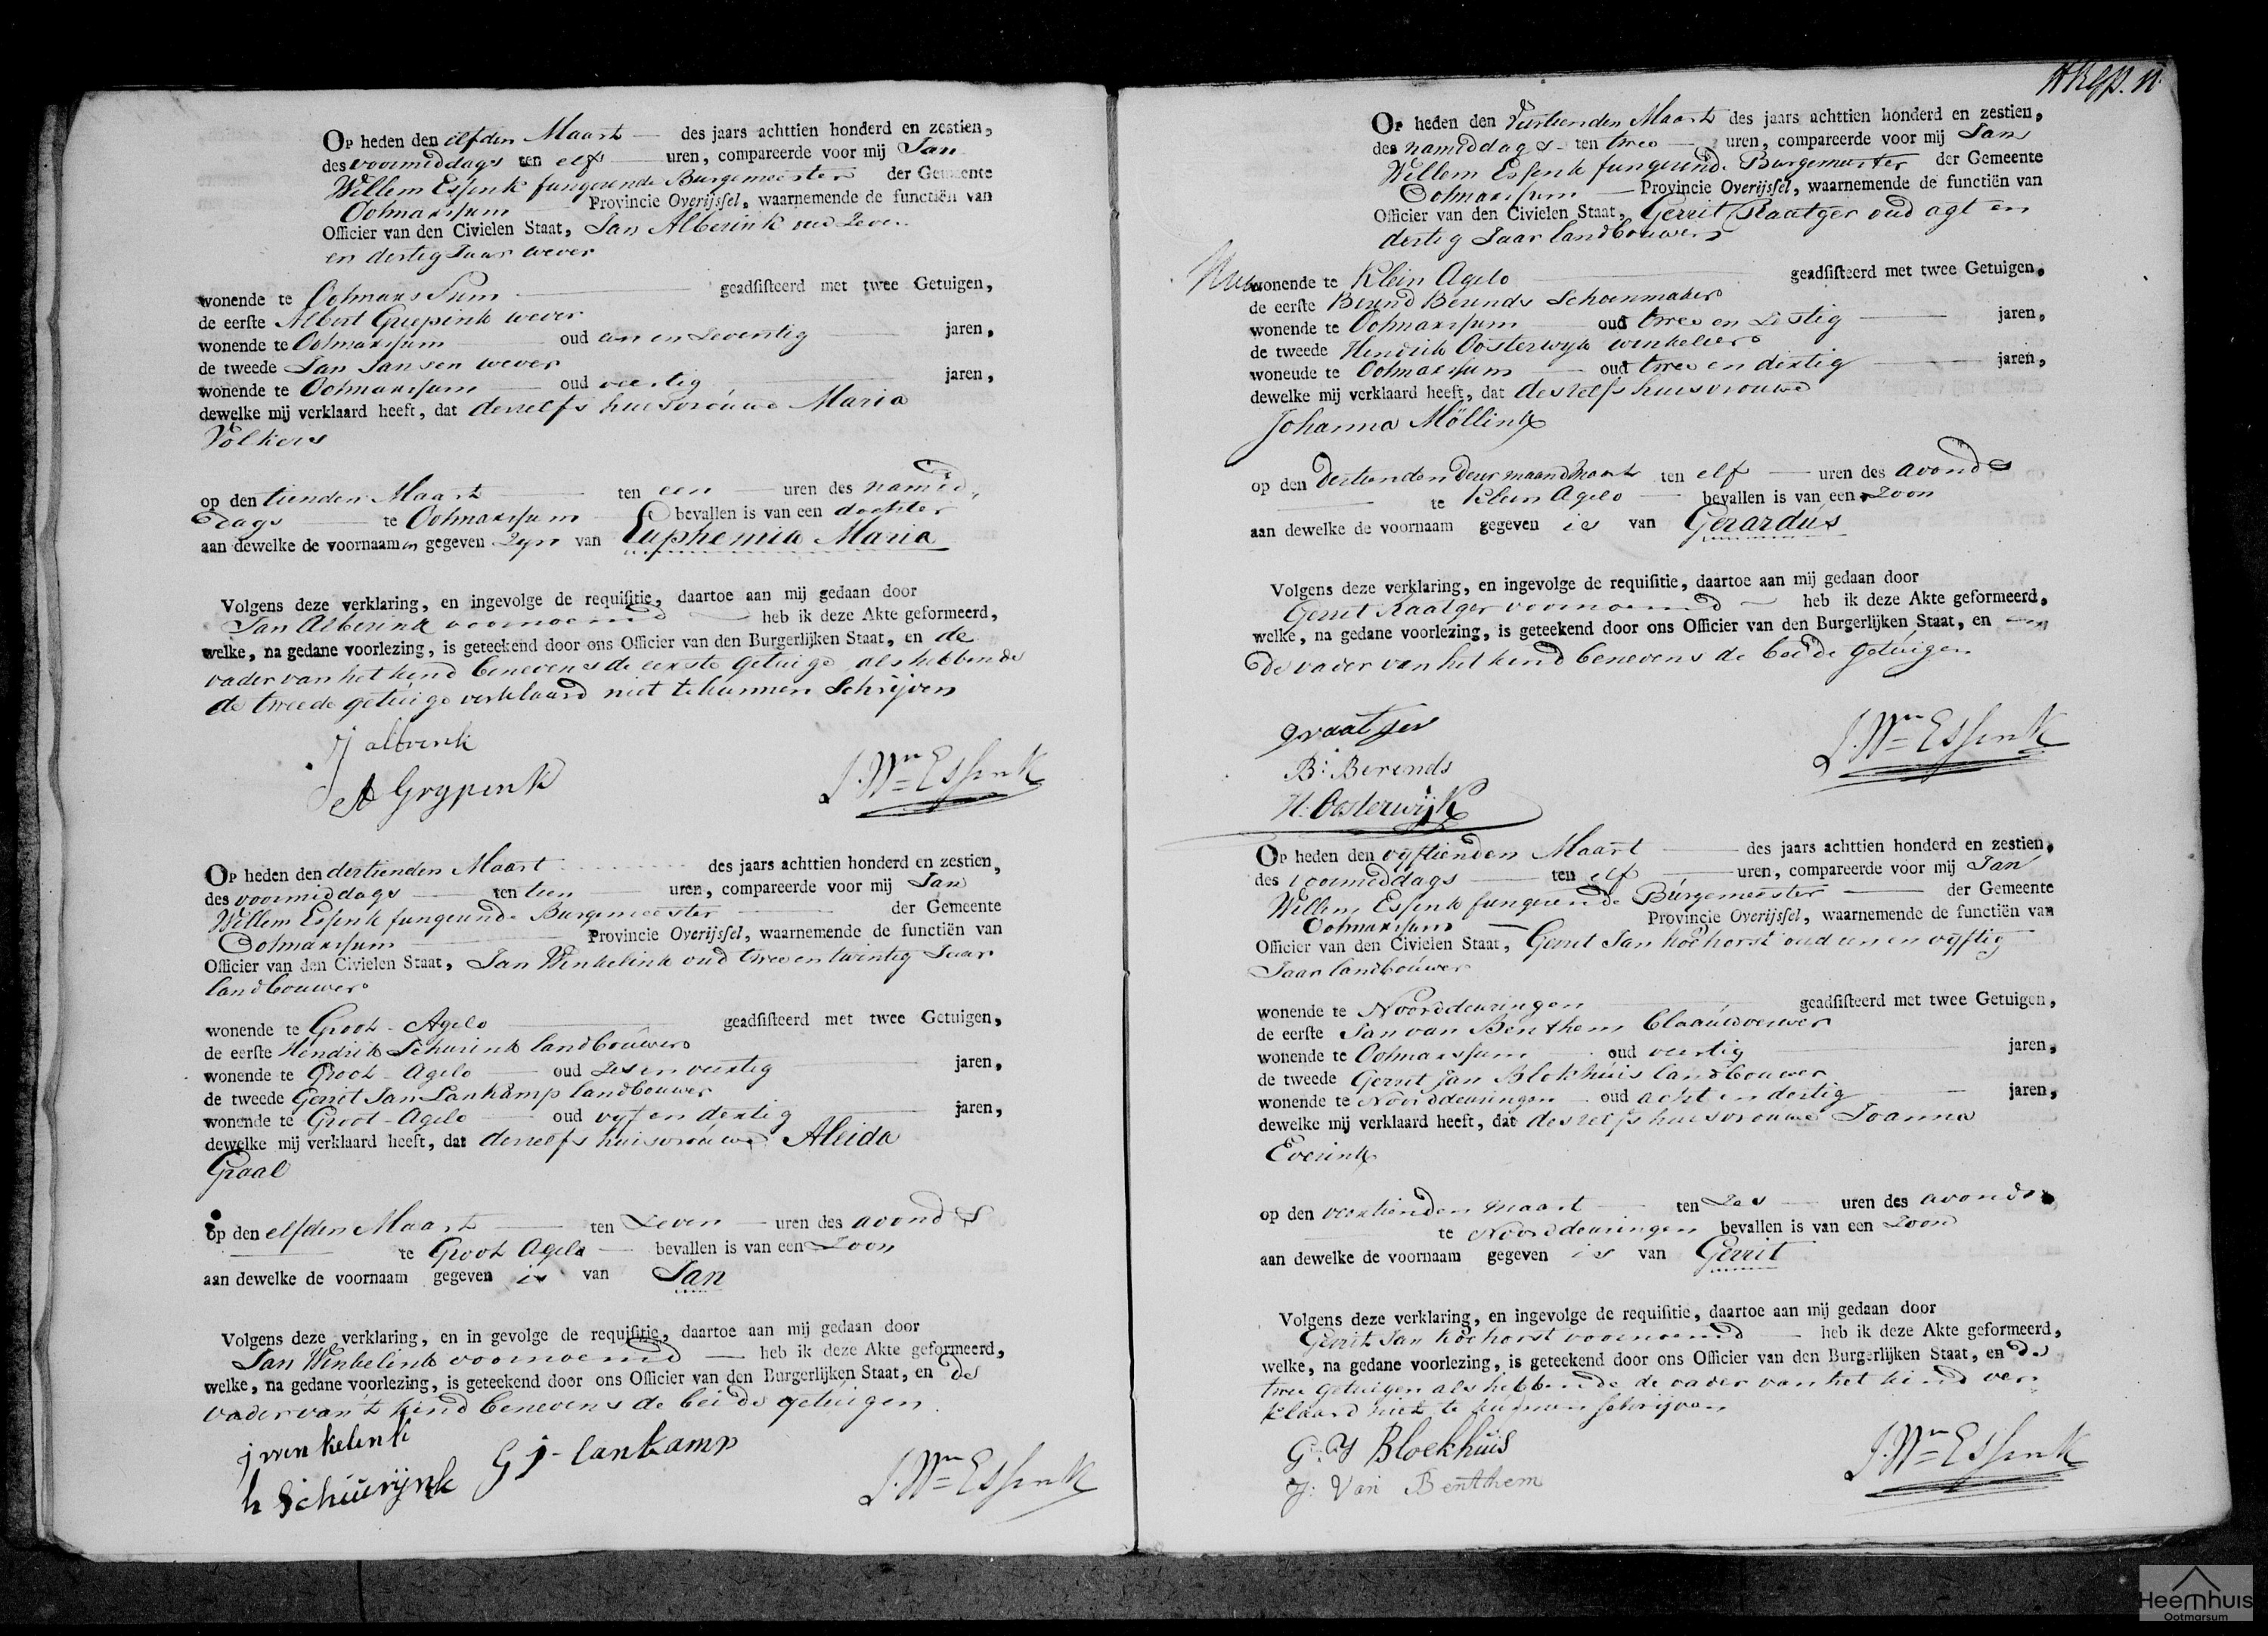 Op heden den elfden Maart des jaars achttien honderd en zestien,
des voormiddags ten elf uren, compareerde voor mij Jan
Willem Essink fungerende Burgemeester der Gemeente
Ootmarssum Provincie Overijssel, waarnemende de functiën van
Officier van den Civielen Staat, Jan Alberink oud Zeven
en dertig Jaar wever
wonende te Ootmarssum geadsisteerd met twee Getuigen,
de eerste Albert Greepink wever
wonende te Ootmarssum oud een en Zeventig jaren,
de tweede Jan Jansen wever
wonende te Ootmarssum oud veertig jaren,
dewelke mij verklaard heeft, dat deszelfs huisvrouwe Maria
Volkers
op den tienden Maart ten een uren des namid
dags te Ootmarssum bevallen is van een dochter
aan dewelke de voornaamen gegeven Zyn van Euphemia Maria
Volgens deze verklaring, en ingevolge de requisitie, daartoe aan mij gedaan door
Jan Alberink voornoemd heb ik deze Akte geformeerd,
welke, na gedane voorlezing, is geteekend door ons Officier van den Burgerlijken Staat, en de
vader van het kind benevens de eerste getuige als hebbende
de tweede getuige verklaard niet te kunnen Schrijven
J albrink
A Grypink
J. Wm Essink
Op heden den dertienden Maart des jaars achttien honderd en zestien,
des voormiddags ten tien uren, compareerde voor mij Jan
Willem Essink fungerende Burgemeester der Gemeente
Ootmarssum Provincie Overijssel, waarnemende de functiën van
Officier van den Civielen Staat, Jan Winkelink oud twee en twintig Jaar
landbouwer
wonende te Groot-Agelo geadsisteerd met twee Getuigen,
de eerste Hendrik Schurink landbouwer
wonende te Groot-Agelo oud Zes en veertig jaren,
de tweede Gerrit Jan Lankamp landbouwer
wonende te Groot-Agelo oud vyf en dertig jaren,
dewelke mij verklaard heeft, dat deszelfs huisvrouwe Aleida
Graal
op den elfden Maart ten Zeven uren des avonds
te Groot Agelo bevallen is van een Zoon
aan dewelke de voornaam gegeven is van Jan
Volgens deze verklaring, en in gevolge de requisitie, daartoe aan mij gedaan door
Jan Winkelink voornoemd heb ik deze Akte geformeerd,
welke, na gedane voorlezing, is geteekend door ons Officier van den Burgerlijken Staat, en de
vader van 't kind benevens de beide getuigen
j winkelink
h Schürijnk
G j-lankamp
J. Wm Essink
Op heden den Veertienden Maart des jaars achttien honderd en zestien,
des namiddags ten twee uren, compareerde voor mij Jan
Willem Essink fungerende Burgemeester der Gemeente
Ootmarssum Provincie Overijssel, waarnemende de functiën van
Officier van den Civielen Staat, Gerrit Raatger oud agt en
dertig Jaar landbouwer
wonende te Klein Agelo geadsisteerd met twee Getuigen,
de eerste Berend Berends Schoenmaker
wonende te Ootmarssum oud twee en Zestig jaren,
de tweede Hendrik Oosterwyk winkelier
woneude te Ootmarssum oud twee en dertig jaren,
dewelke mij verklaard heeft, dat deszelfs huisvrouwe
Johanna Möllink
op den dertienden deser maand Maart ten elf uren des avonds
te Klein Agelo bevallen is van een Zoon
aan dewelke de voornaam gegeven is van Gerardus
Volgens deze verklaring, en ingevolge de requisitie, daartoe aan mij gedaan door
Gerrit Raatger voornoemd heb ik deze Akte geformeerd,
welke, na gedane voorlezing, is geteekend door ons Officier van den Burgerlijken Staat, en
de vader van het kind benevens de beide getuigen
g raatger
B: Berends
H. Oosterwijk
J. Wm Essink
Op heden den vyftienden Maart des jaars achttien honderd en zestien,
des voormiddags ten elf uren, compareerde voor mij Jan
Willem Essink fungerende Burgemeester der Gemeente
Ootmarssum Provincie Overijssel, waarnemende de functiën van
Officier van den Civielen Staat, Gerrit Jan Koehorst oud een en vyftig
Jaar landbouwer
wonende te Noorddeuringen geadsisteerd met twee Getuigen,
de eerste Jan van Benthem blaauwverwer
wonende te Ootmarssum oud veertig jaren,
de tweede Gerrit Jan Blokhuis landbouwer
wonende te Noorddeuringen oud acht en dertig jaren,
dewelke mij verklaard heeft, dat deszelfs huisvrouwe Joanna
Everink
op den veertienden maart ten Zes uren des avonds
te Noorddeuringen bevallen is van een Zoon
aan dewelke de voornaam gegeven is van Gerrit
Volgens deze verklaring, en ingevolge de requisitie, daartoe aan mij gedaan door
Gerrit Jan Koehorst voornoemd heb ik deze Akte geformeerd,
welke, na gedane voorlezing, is geteekend door ons Officier van den Burgerlijken Staat, en de
twee getuigen als hebbende de vader van het kind ver
klaard niet te kunnen schrijven
G: J Bloekhuis
J: Van Benthem
J. Wm Essink
Heemhuis
Ootmarsum